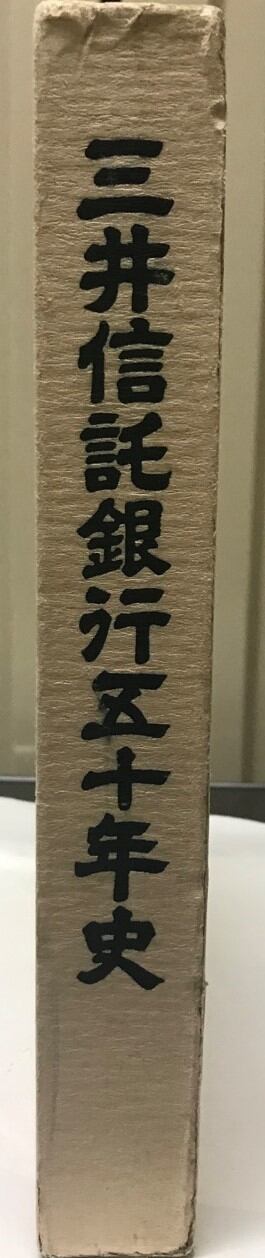 三井信託銀行五十年史